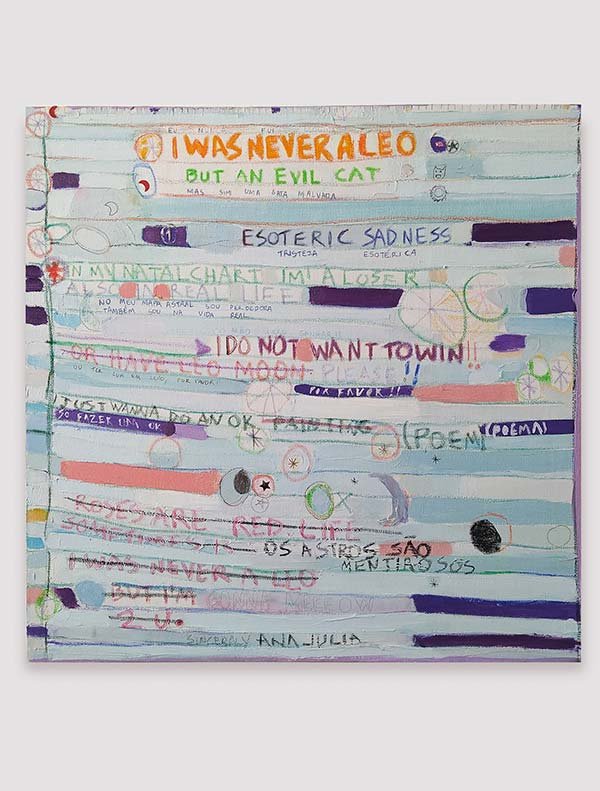 EU NUNCA FUI
I WAS NEVER A LEO
BUT AN EVIL CAT
MAS SIM UMA GATA MALVADA
ESOTERIC SADNESS
TRISTEZA ESOTÉRICA
IN MY NATAL CHART IM A LOSER
ALSO IN REAL LIFE
NO MEU MAPA ASTRAL SOU PERDEDORA
TAMBÉM SOU NA VIDA REAL
NÃO
I DO NOT WANT TO WIN!!
OR HAVE LEO MOON PLEASE!!
OU TER LUA EM LEÃO, POR FAVOR
POR FAVOR!!
I JUST WANNA DO AN OK PAINTING (POEM)
SO FAZER UMA OK (POEMA)
ROSES ARE RED LIFE
SOMETIMES IS OS ASTROS SÃO
MENTIROSOS
I WAS NEVER A LEO
BUT I'M GONNA MELLOW
2 U.
SINCERELY ANA JULIA